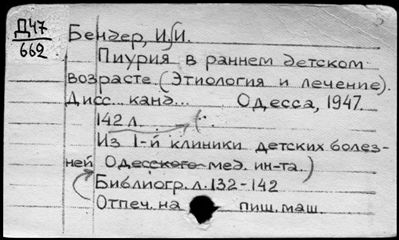 Д47
662
Бендер, И.И.
Пиурия в раннем детском
возрасте. (Этиология и лечение).
Дисс... канд... Одесса, 1947.
142 л.
(Из 1-й клиники детских болез-
ней Одесского мед. ин-та.)
Библиогр. л. 132-142
Отпеч. на пиш. маш.